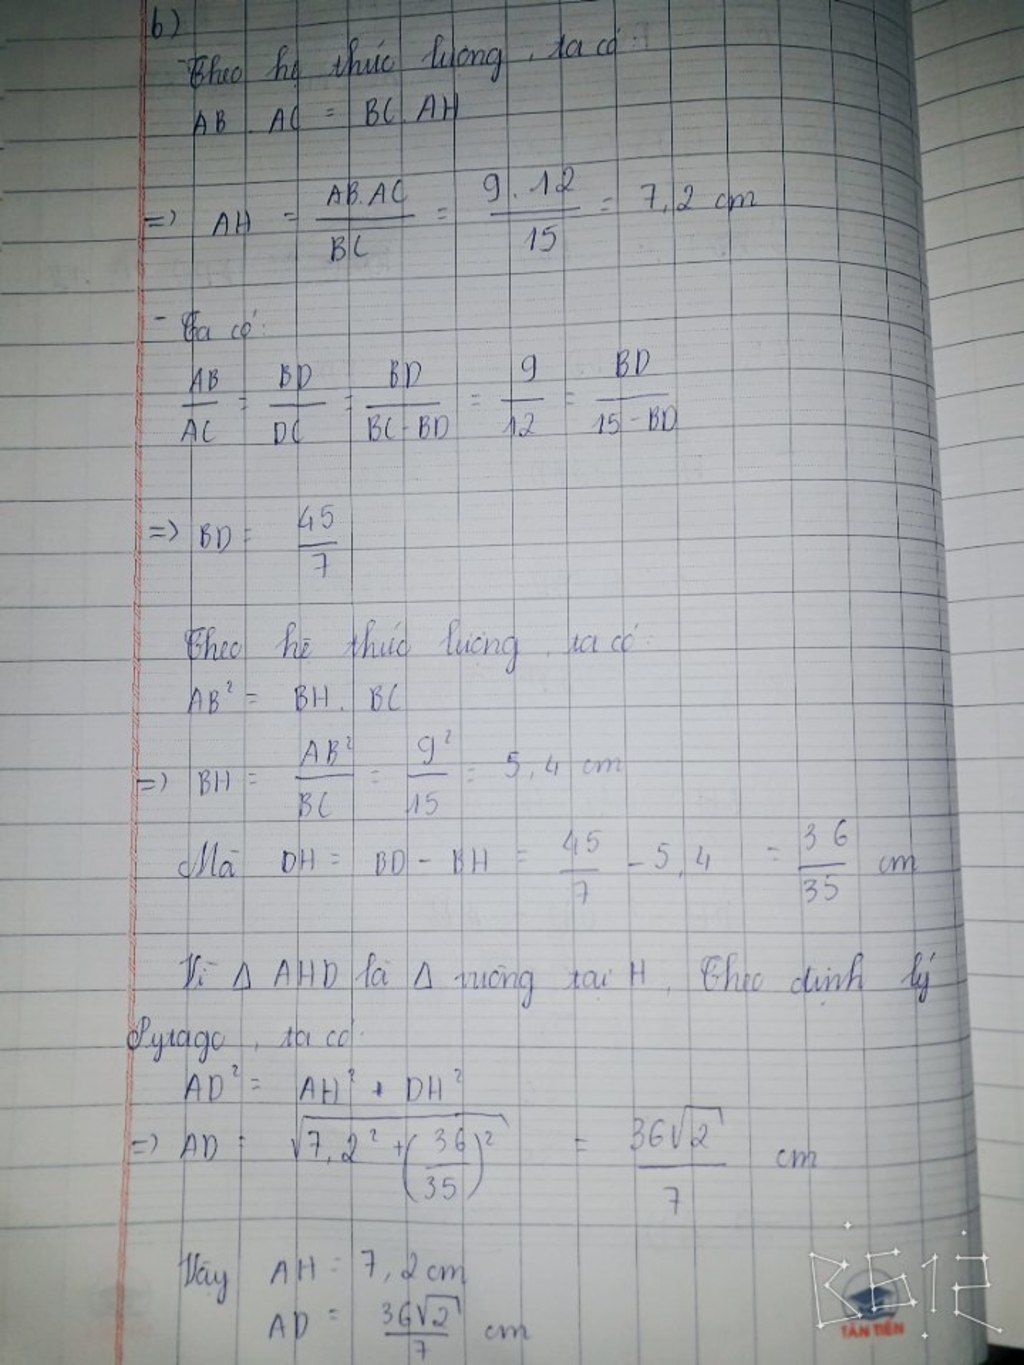 b)
Theo hệ thức lương, ta có:
AB . AC = BC . AH
=> AH = AB.AC / BC = 9.12 / 15 = 7,2 cm
- Ta có:
AB/AC = BD/DC = BD/(BC-BD) = 9/12 = BD/(15-BD)
=> BD = 45/7
Theo hệ thức lương, ta có
AB² = BH . BC
=> BH = AB²/BC = 9²/15 = 5,4 cm
Mà DH = BD - BH = 45/7 - 5,4 = 36/35 cm
Vì Δ AHD là Δ vuông tại H, Theo định lý
Pytago, ta có:
AD² = AH² + DH²
=> AD = √(7,2² + (36/35)²) = 36√2/7 cm
Vậy AH = 7,2 cm
AD = 36√2/7 cm
B612
TÂN TIẾN